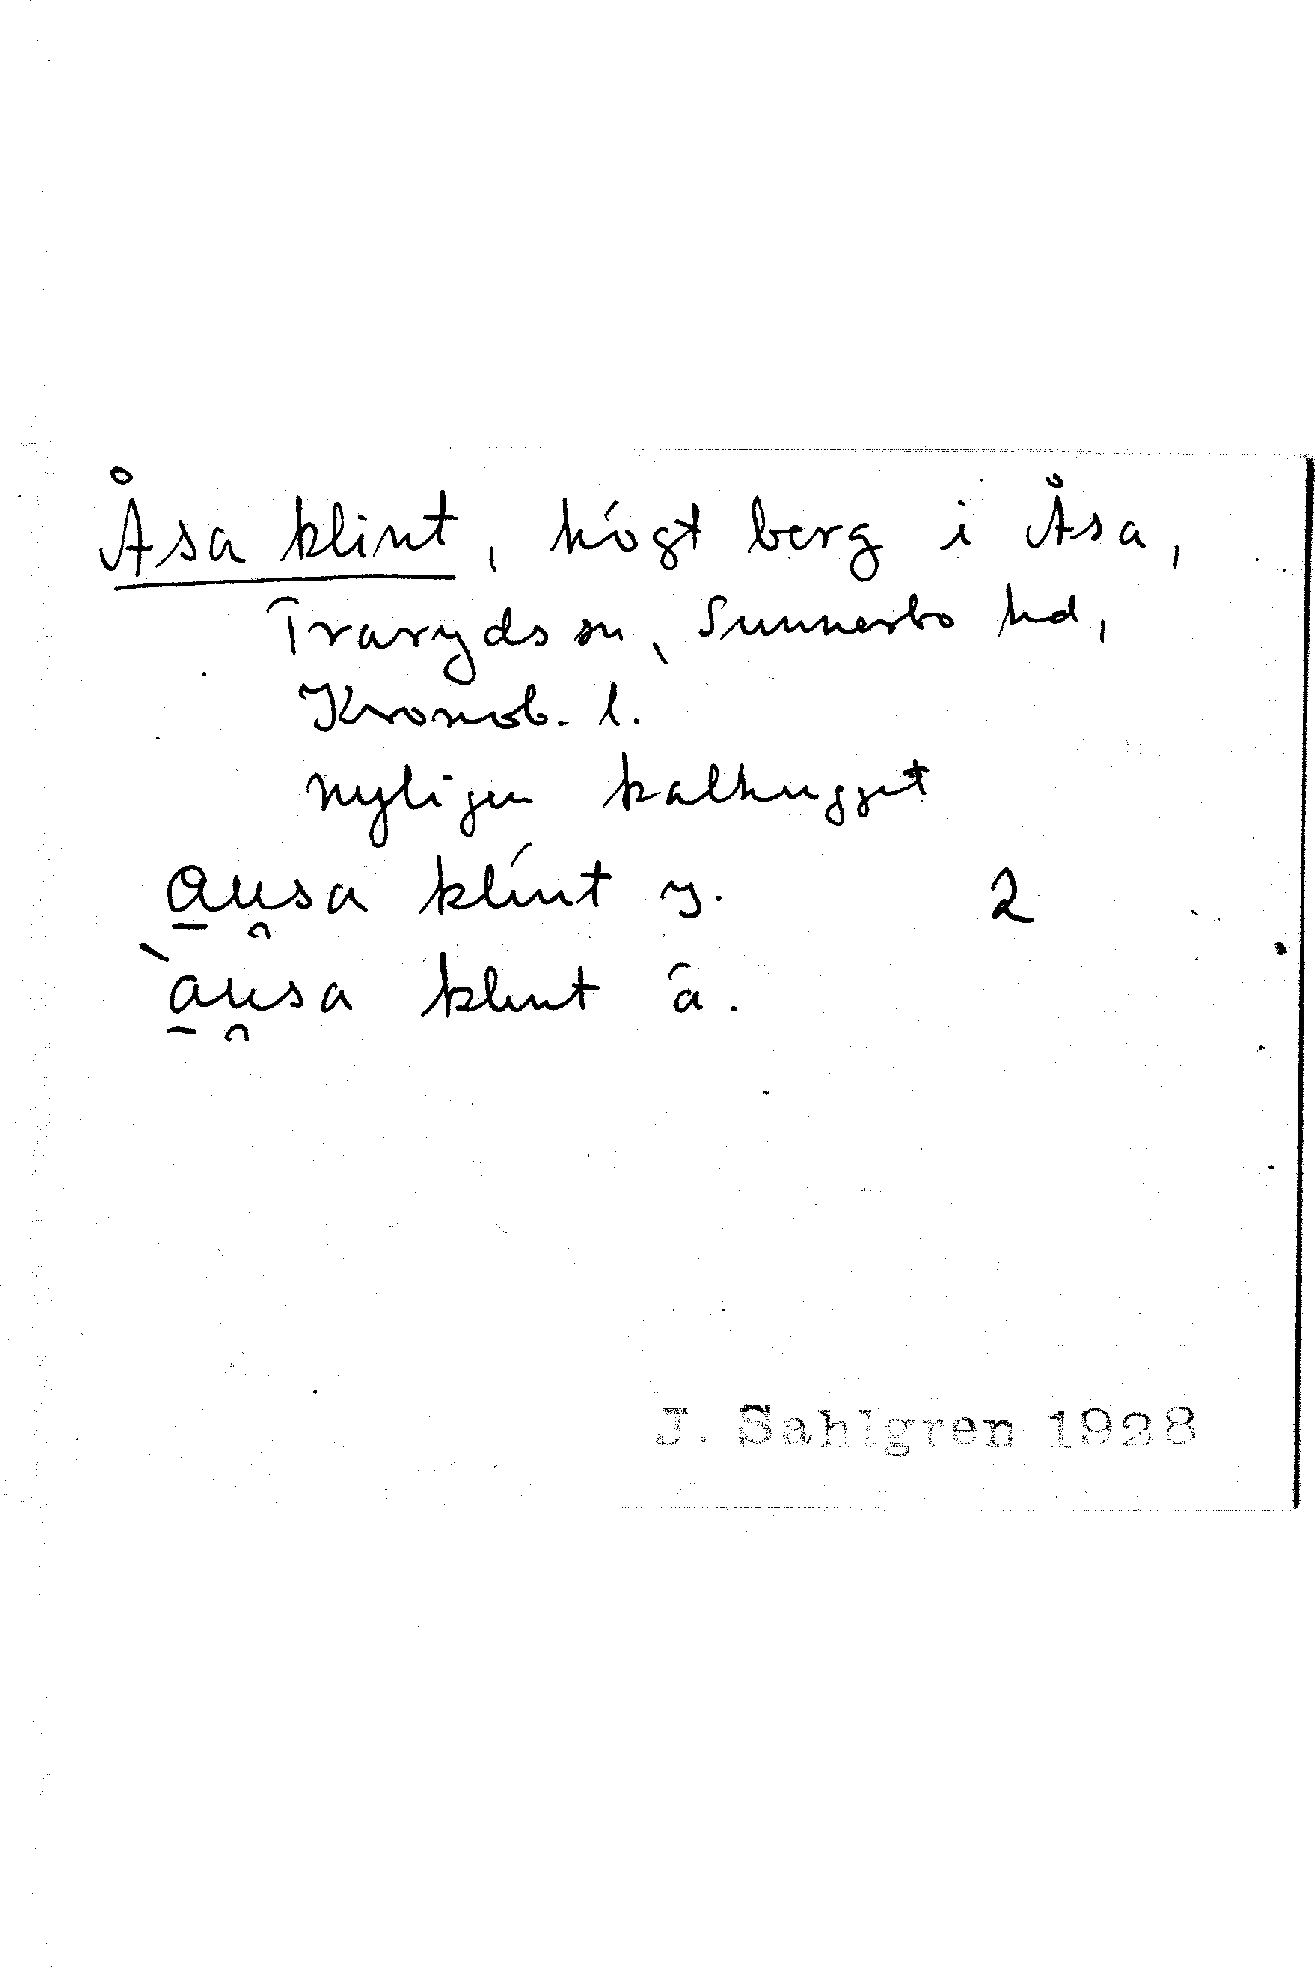 Åsa klint, högt berg i Åsa,
Traryds sn, Sunnerbo hd,
Kronob. l.
nyligen kalhugget
a̲u̯sa klínt y. 2
à̲u̯sa klint ä.
J. Sahlgren 1928